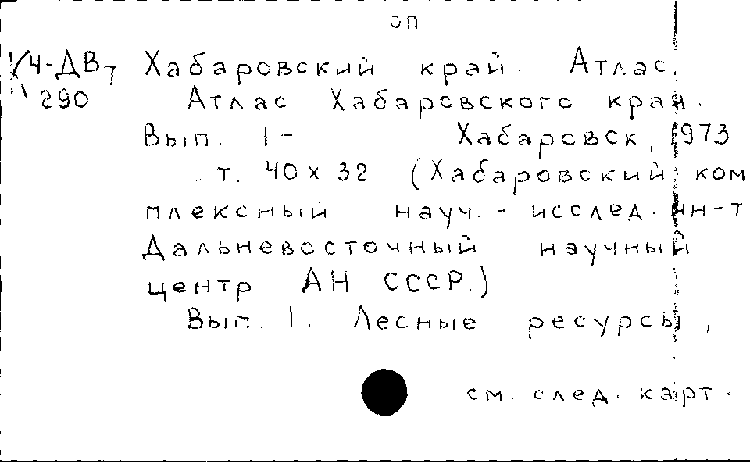 оп
Ч-ДВ7 Хабаровский край. Атлас.
290 Атлас Хабаровского края.
Вып. 1- Хабаровск, 1973
т. 40х32 (Хабаровский ком
плексный науч.-исслед. ин-т
Дальневосточный научный
центр АН СССР.)
Вып. 1. Лесные ресурсы,
см. след. карт.